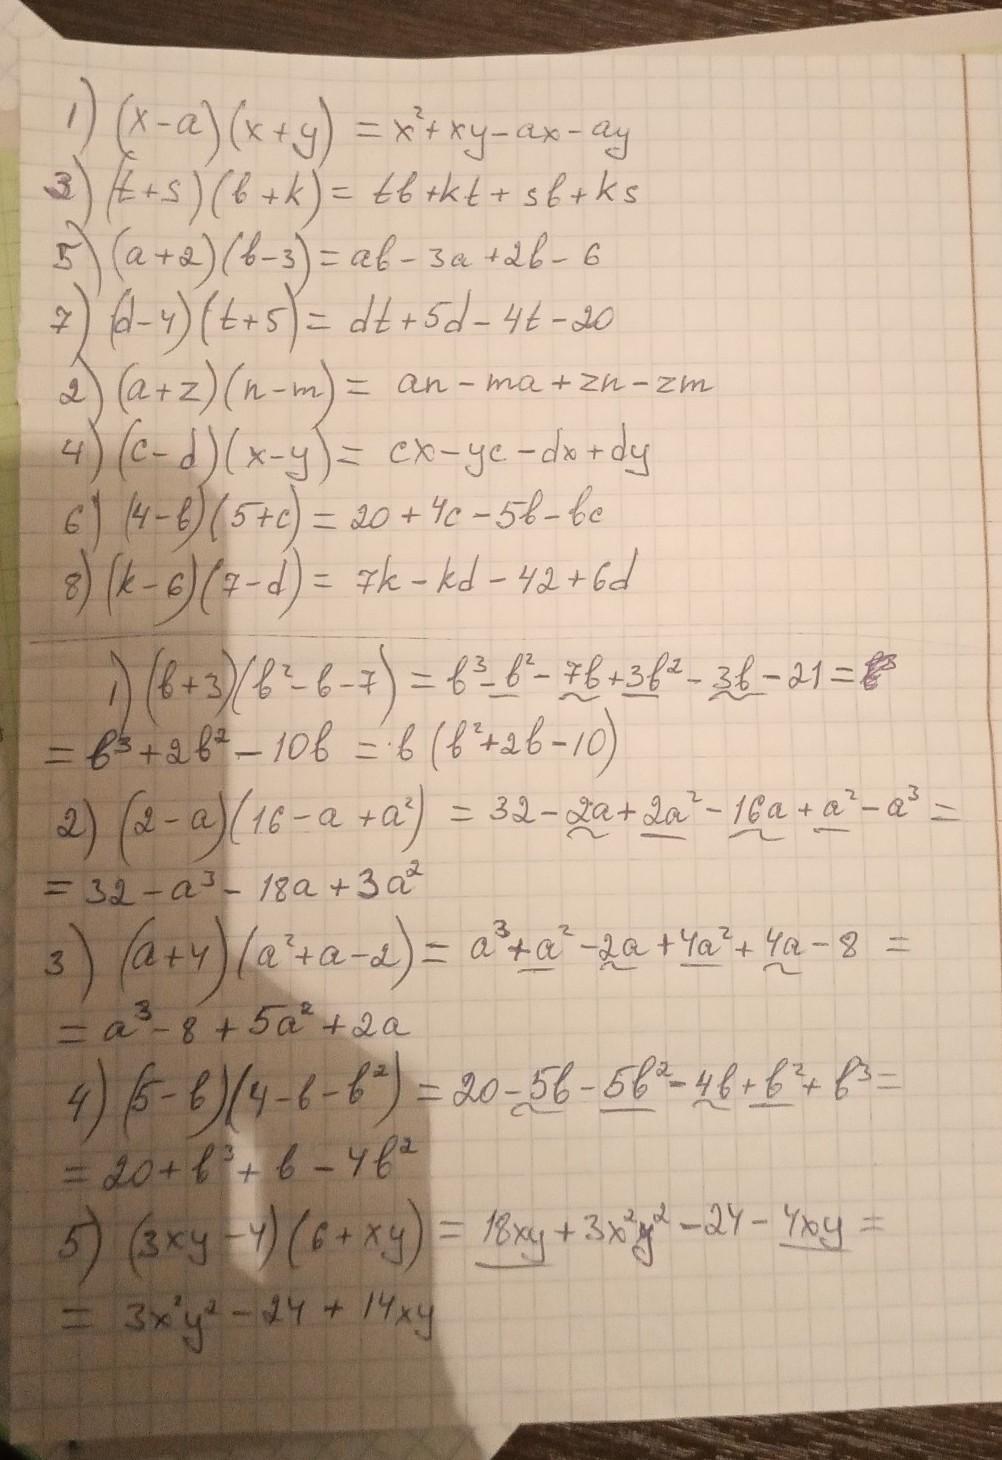 1) (x-a)(x+y) = x²+xy-ax-ay
3) (t+s)(b+k) = tb+kt+sb+ks
5) (a+2)(b-3) = ab-3a+2b-6
7) (d-4)(t+5) = dt+5d-4t-20
2) (a+z)(n-m) = an-ma+zn-zm
4) (c-d)(x-y) = cx-yc-dx+dy
6) (4-b)(5+c) = 20+4c-5b-bc
8) (k-6)(7-d) = 7k-kd-42+6d
1) (b+3)(b²-b-7) = b³-b²-7b+3b²-3b-21=
= b³+2b²-10b = b(b²+2b-10)
2) (2-a)(16-a+a²) = 32-2a+2a²-16a+a²-a³ =
= 32-a³-18a+3a²
3) (a+4)(a²+a-2) = a³+a²-2a+4a²+4a-8 =
= a³-8+5a²+2a
4) (5-b)(4-b-b²) = 20-5b-5b²-4b+b²+b³=
= 20+b³+b-4b²
5) (3xy-4)(6+xy) = 18xy+3x²y²-24-4xy =
= 3x²y²-24+14xy